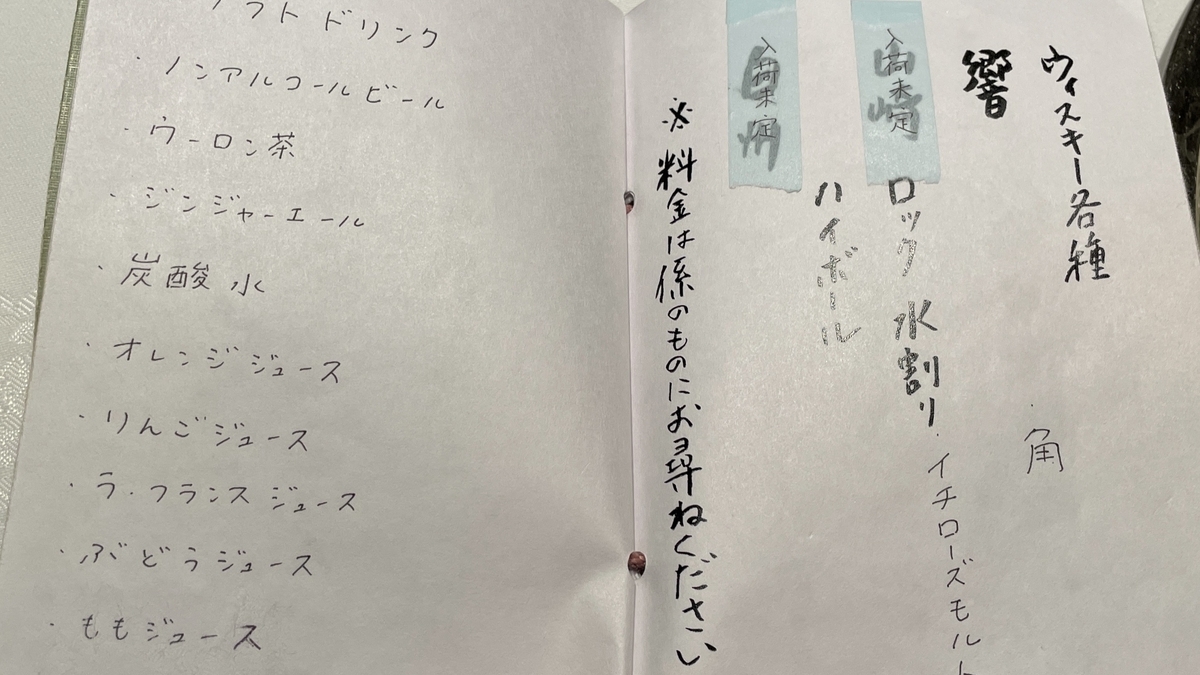 ソフトドリンク
・ノンアルコールビール
・ウーロン茶
・ジンジャーエール
・炭酸水
・オレンジジュース
・りんごジュース
・ラ・フランスジュース
・ぶどうジュース
・ももジュース
ウィスキー各種
響
・角
・イチローズモルト
入荷未定
ロック 水割り
入荷未定
ハイボール
※料金は係のものにお尋ねください